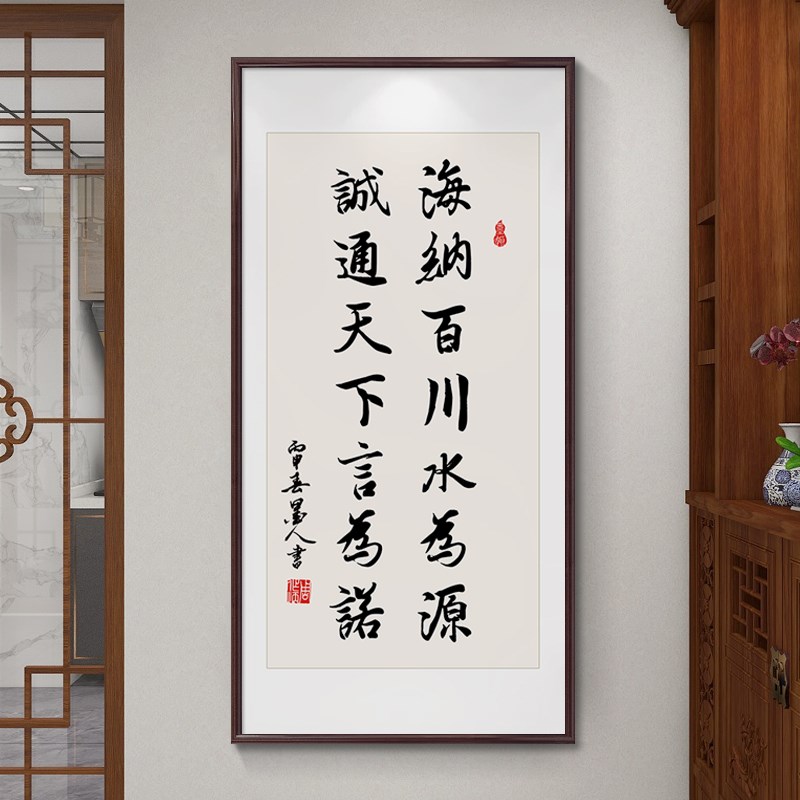 海納百川水為源
誠通天下言為諾
丙申春墨人書